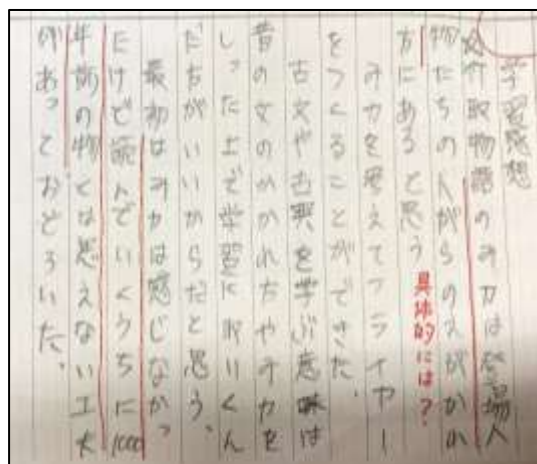 学習感想
竹取物語のみ力は登場人
物たちの人がらのえがかれ
方にあると思う
具体的には?
み力を考えてフライヤー
をつくることができた。
古文や古典を学ぶ意味は
昔の文のかかれ方やみ力を
しった上で学習に取りくん
だ方がいいからだと思う。
最初はみ力は感じなかっ
たけど読んでいくうちに1000
年前の物とは思えない工夫
があっておどろいた。